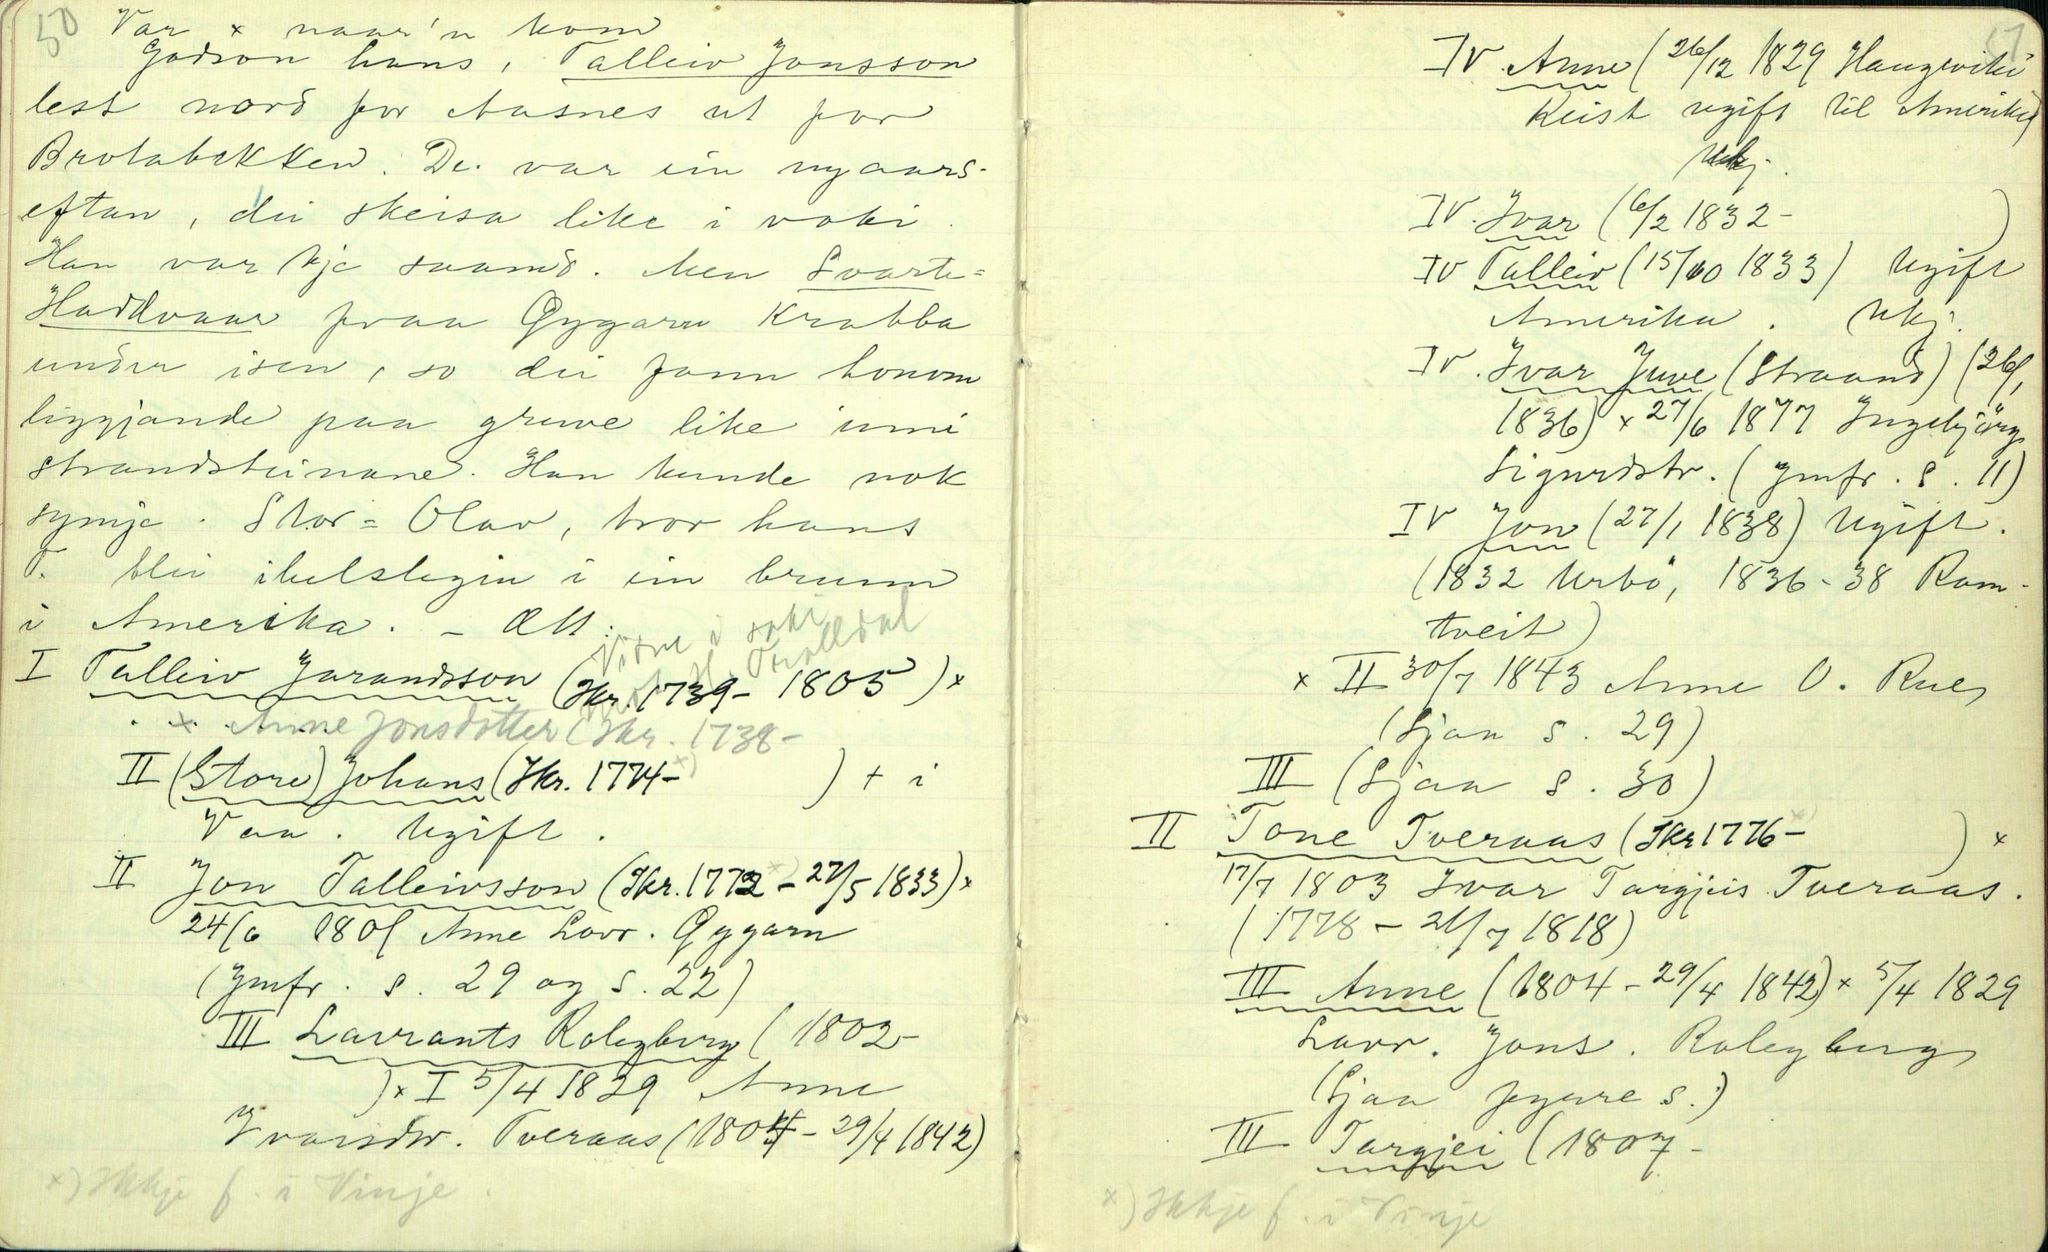 50
Var × naar'n kom
Godson hans, Talleiv Jonsson
lest nord for Aasnes ut for
Brotabekken. De. var ein nyaars-
eftan, dei skeisa like i voki.
Han var kje saamd. Men Svarte-
Haddvaar fraa Gygarn Krabba
under isen, so dei fann honom
liggjande paa gruve like inni
strandsteinane. Han kunde nok
symje. Stor=Olav, bror hans
T. blei ihelslegin i ein brunn
i Amerika. - Ætt:
I Talleiv Jarandsson (Skr. 1739- 1805) ×
× Anne Jonsdotter (Skr. 1738-
II (Store) Johans (Skr. 1774- ×) ) + i
Vaa. Ugift.
II Jon Talleivsson (Skr. 1772 ×) - 27/5 1833) ×
24/6 1801 Anne Lavr. Gygarn
(Jmfr. s. 29 og s. 22)
III Lavrants Rolegberg (1802-
) × I 5/4 1829 Anne
Ivarsdtr. Tveraas (1804 - 29/4 1842)
×) Ikkje f. i Vinje.
51
IV. Anne (26/12 1829 Haugeviki
Reist ugift til Amerika)
Ukj.
IV. Ivar (6/2 1832- )
IV Talleiv (15/10 1833) Ugift
Amerika. Ukj.
IV. Ivar Juve (Straand) (26/1
1836) × 27/6 1877 Ingebjörg
Sigurdstr. (Jmfr. s. 11)
IV Jon (27/1 1838) Ugift.
(1832 Urbö, 1836-38 Ram-
tveit)
× II 30/7 1843 Anne O. Rue,
(Sjaa s. 29)
III (Sjaa s. 30)
II Tone Tveraas (Skr 1776- ×) ) ×
17/7 1803 Ivar Targjeis. Tveraas.
(1778 - 21/7 1818)
III Anne (1804 - 29/4 1842) × 5/4 1829
Lavr. Jons. Roleg berg
(Sjaa fyrre s.)
III Targjei (1807-
×) Ikkje f. i Vinje